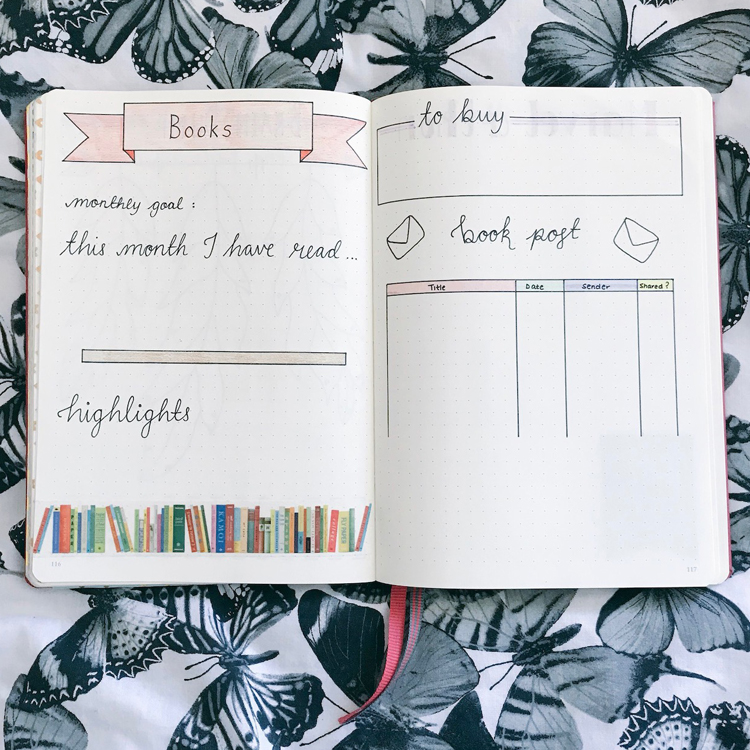 Books
monthly goal :
this month I have read...
highlights
KAMOI
116
to buy
book post
Title Date Sender Shared?
117